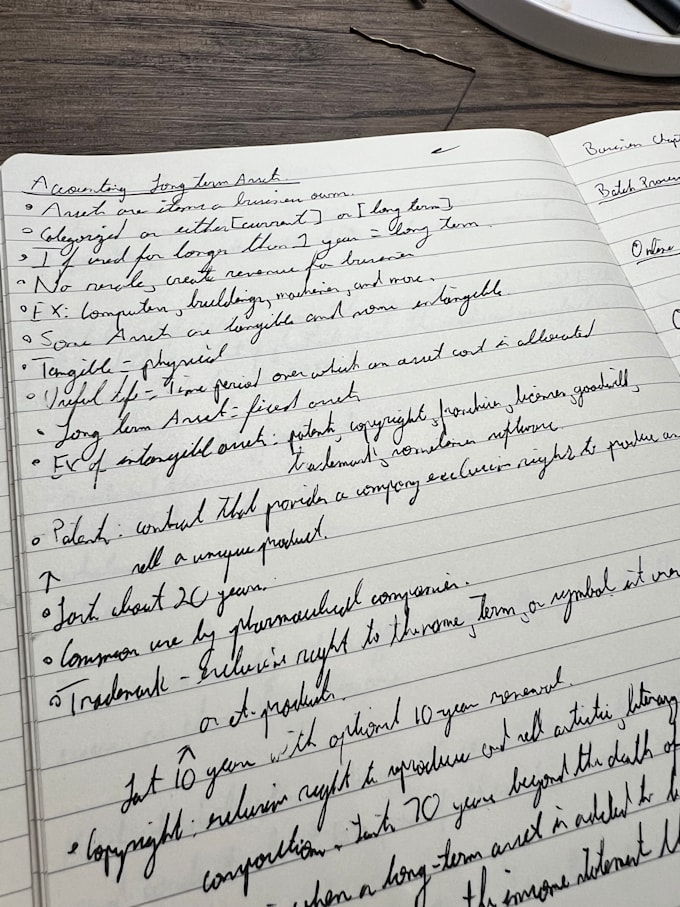 Accounting Long term Asset
• Asset are items a business own.
• Categorized as either [current] or [long term]
• If used for longer than 1 year = long term
• No resale, create revenue for business
• EX: Computers, buildings, machines, and more.
• Some Asset are tangible and some intangible
• Tangible = physical
• Useful life = Time period over which an asset cost is allocated
• Long term Asset = fixed asset
• EX of intangible asset: patent, copyright, franchise, licenses, goodwill,
trademark, sometimes software.
• Patent: contract that provides a company exclusive right to produce an
sell a unique product.
↑
• Last about 20 years.
• Common use by pharmaceutical companies.
• Trademark - exclusive right to the name, term, or symbol it
or it product.
Last 10 years with optional 10-year renewal.
• Copyright: exclusive right to reproduce and sell artistic, literary
composition. Lasts 70 years beyond the death of
when a long-term asset is added to
the income statement
Business Chap
Batch
Online